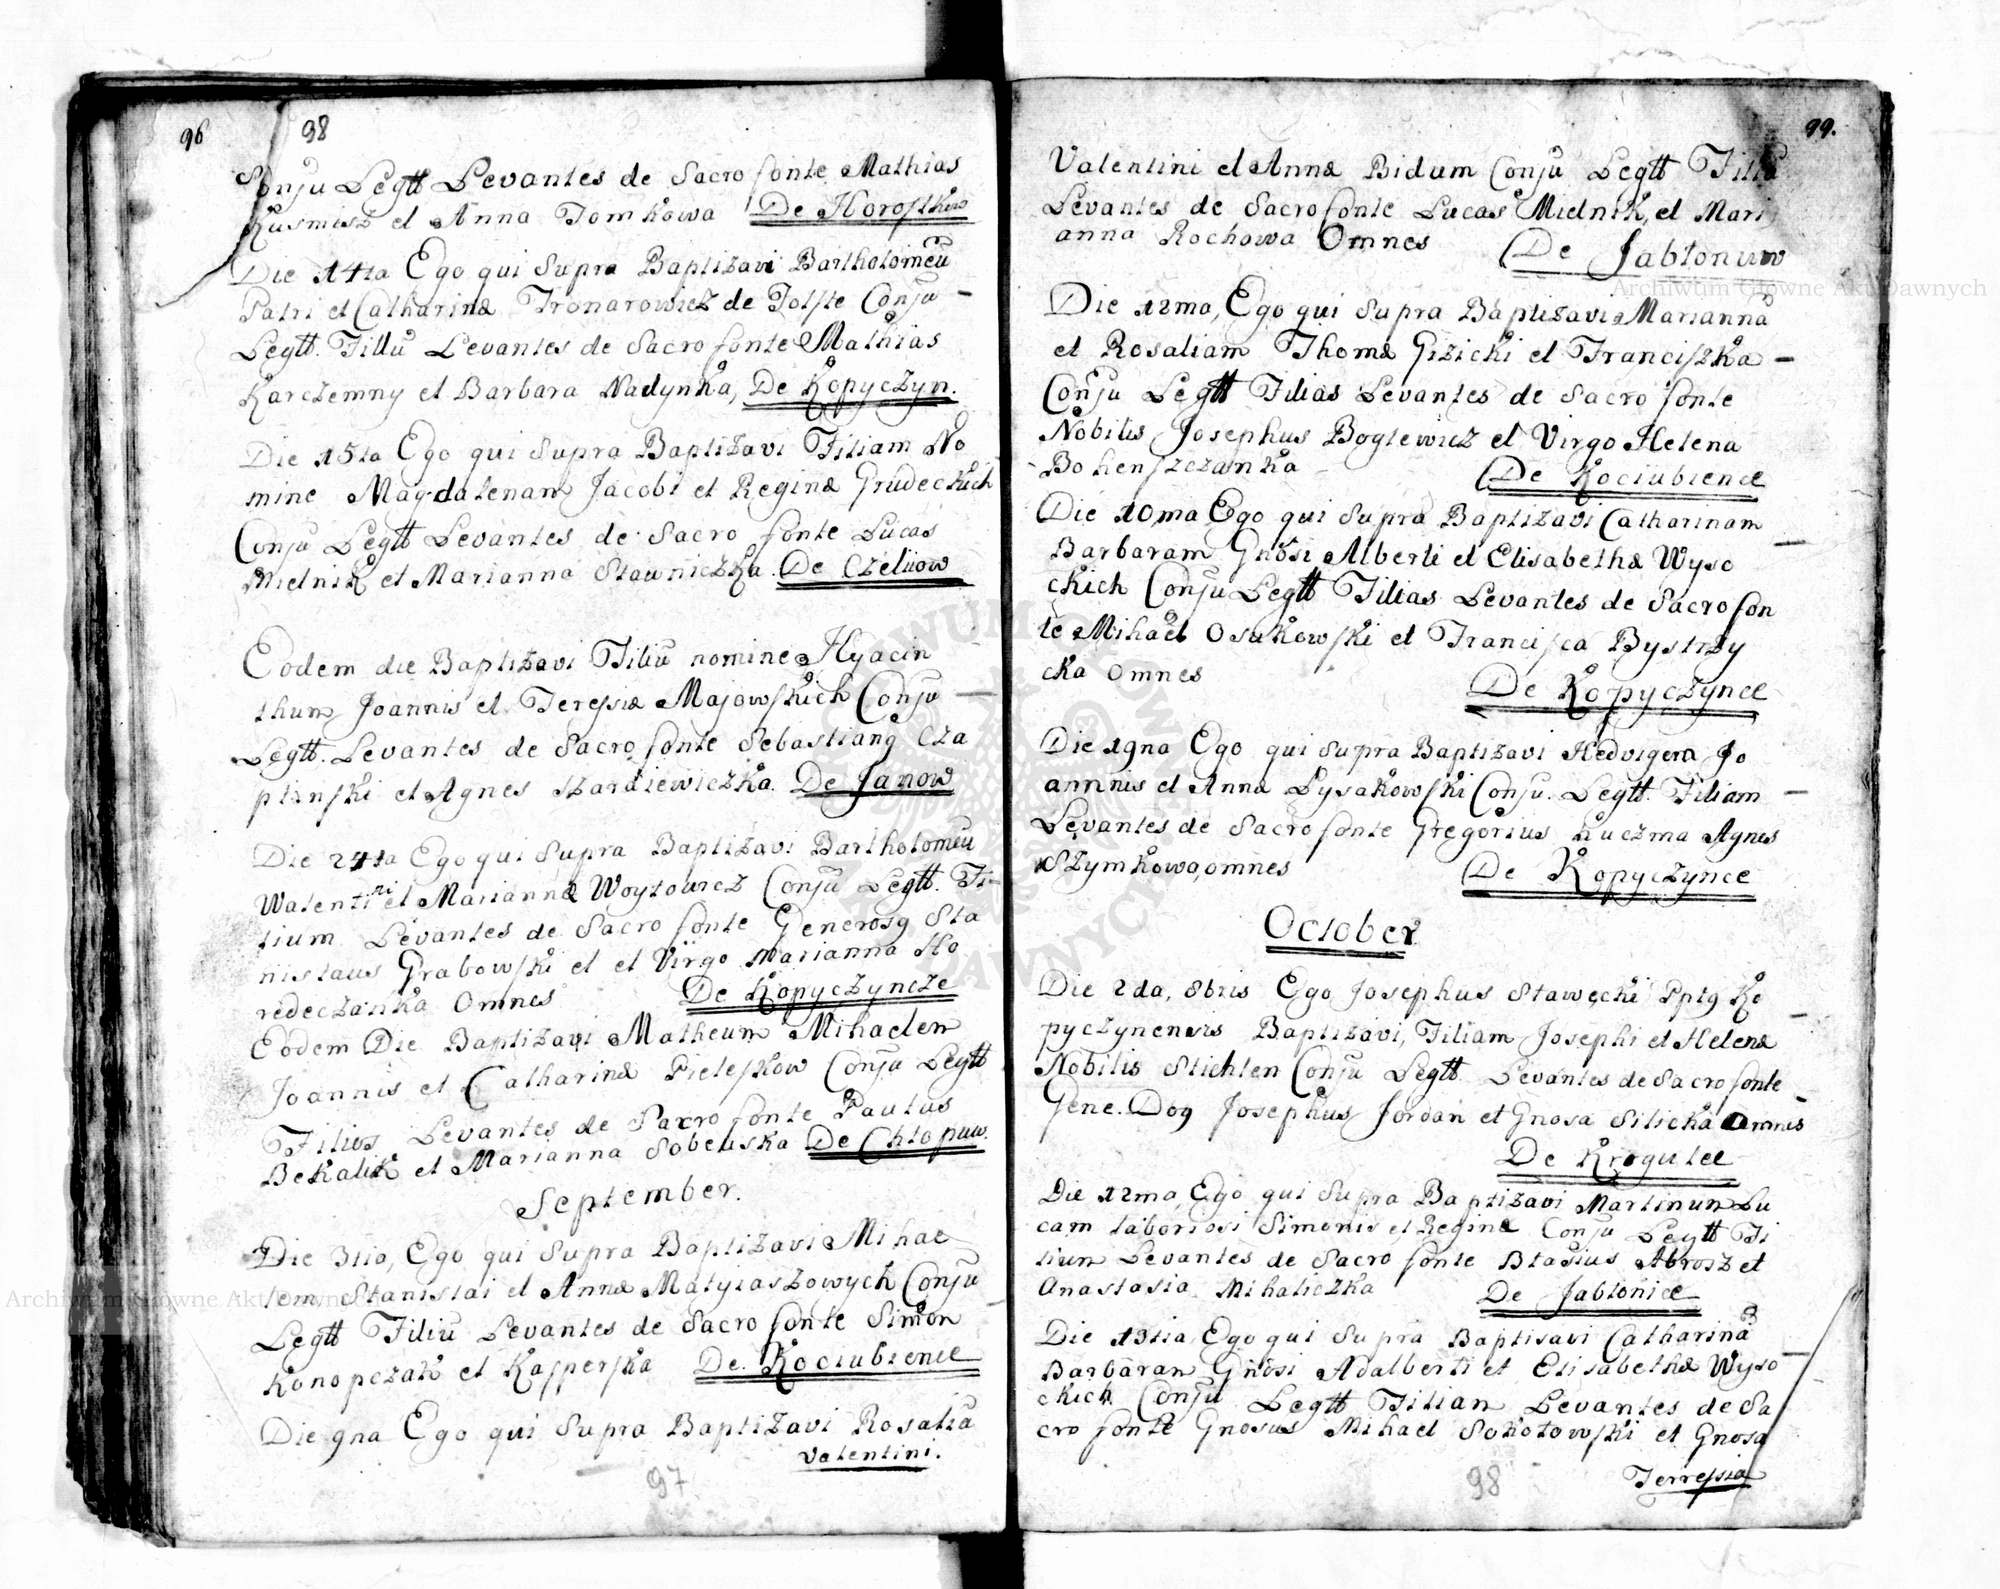 96
98
Conju Legtt Levantes de Sacro fonte Mathias
Kusmisz et Anna Tomkowa De Horostkow
Die 14ta Ego qui Supra Baptizavi Bartholomeū
Patri et Catharinæ Tronarowicz de Tolste Conju
Legtt. Filiū Levantes de Sacro fonte Mathias
Karczemny et Barbara Nadynka, De Kopyczyn.
Die 15ta Ego qui Supra Baptizavi Filiam No
mine Magdalenam Jacobi et Reginæ Grudeckich
Conju Legtt Levantes de Sacro fonte Lucas
Mielnik et Marianna Stawniczka. De Czeluow
Eodem die Baptizavi Filiū nomine Hyacin
thum Joannis et Teresiæ Majowskich Conju
Legtt. Levantes de Sacro fonte Sebastiang Cza
plinski et Agnes Szardiewiczka. De Janow
Die 24ta Ego qui Supra Baptizavi Bartholomeū
Walentini et Mariannæ Woytowicz Conju Legtt. Fi-
lium Levantes de Sacro fonte Generosg Sta
nislaus Grabowski et et Virgo Marianna Ho
redeczanka Omnes De Kopyczyncze
Eodem Die Baptizavi Matheum Mihaelem
Joannis et Catharinæ Pieleskow Conju Legtt
Filios Levantes de Sacro fonte Paulus
Bekalik et Marianna Sobeuska De Chlopuw.
September.
Die 3tia, Ego qui Supra Baptizavi Mihae
lem Stanislai et Annæ Matyiaszowych Conju
Legtt Filiū Levantes de Sacro fonte Simon
Konopczak et Kasperska De Kociubience
Die 9na Ego qui Supra Baptizavi Rosaliā
Valentini.
97
99.
Valentini et Annæ Bidum Conju Legtt Filiā
Levantes de Sacro fonte Lucas Mielnik, et Mari
anna Rochowa Omnes De Jablonuw
Die 12ma, Ego qui Supra Baptizavi Mariannā
et Rosaliam Thomæ Gizicki et Franciszka
Conju Legtt Filias Levantes de Sacro fonte
Nobilis Josephus Boglewicz et Virgo Helena
Bohenszczanka De Kociubience
Die 10ma Ego qui Supra Baptizavi Catharinam
Barbaram Gnosi Alberti et Elisabethæ Wyso
ckich Conju Legtt Filias Levantes de Sacro fon
te Mihael Osukowski et Francisca Bystrzy
cka Omnes De Kopyczynce
Die 19na Ego qui Supra Baptizavi Hedvigem Jo
annnis et Annæ Lysakowski Conju. Legtt. Filiam
Levantes de Sacro fonte Gregorius Kuczma Agnes
Szymkowa, omnes De Kopyczynce
October
Die 2da, 8bris Ego Josephus Stawęcki Pptg Ko
pyczynensis Baptizavi, Filiam Josephi et Helenæ
Nobilis Stichlen Conju Legtt. Levantes de Sacro fonte
Gene. Dog Josephus Jordan et Gnosa Silicka Omnes
De Krogulee
Die 12ma, Ego qui Supra Baptizavi Martinum Lu
cam laboriosi Simonis et Reginæ Conju Legtt Fi
lium Levantes de Sacro fonte Blasius Abrosz et
Anastasia Mihaliczka De Jablonice
Die 13tia, Ego qui Supra Baptisavi Catharinā
Barbaram Gnosi Adalberti et Elisabethæ Wyso
ckich Conju Legtt Filiam Levantes de Sa
cro fonte Gnosus Mihael Sokołowski et Gnosa
Terresia
98
Archiwum Główne Akt Dawnych
Archiwum Główne Akt Dawnych
ARCHIWUM GŁÓWNE AKT DAWNYCH